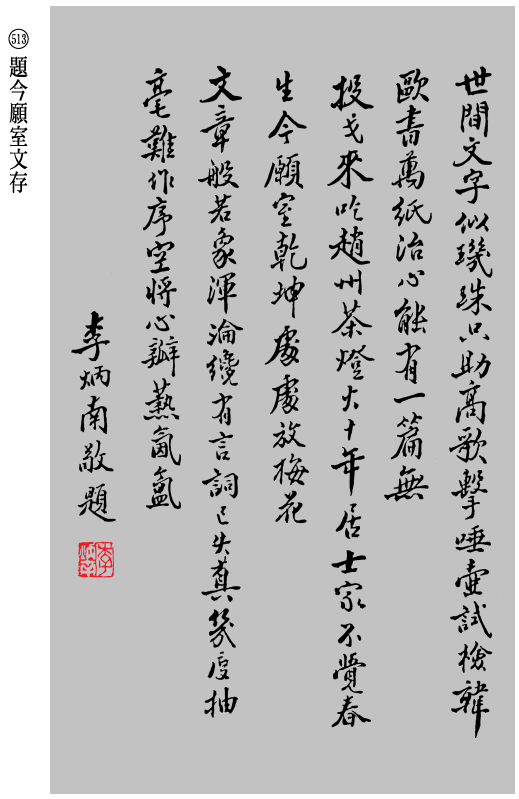 513 題今願室文存
世間文字似璣珠只助高歌擊唾壺試檢韓
歐書萬紙治心能有一篇無
投戈來吃趙州茶燈火十年居士家不覺春
生今願室乾坤處處放梅花
文章般若象渾淪纔有言詞已失真幾度抽
毫難作序空將心瓣爇氤氳
李炳南敬題